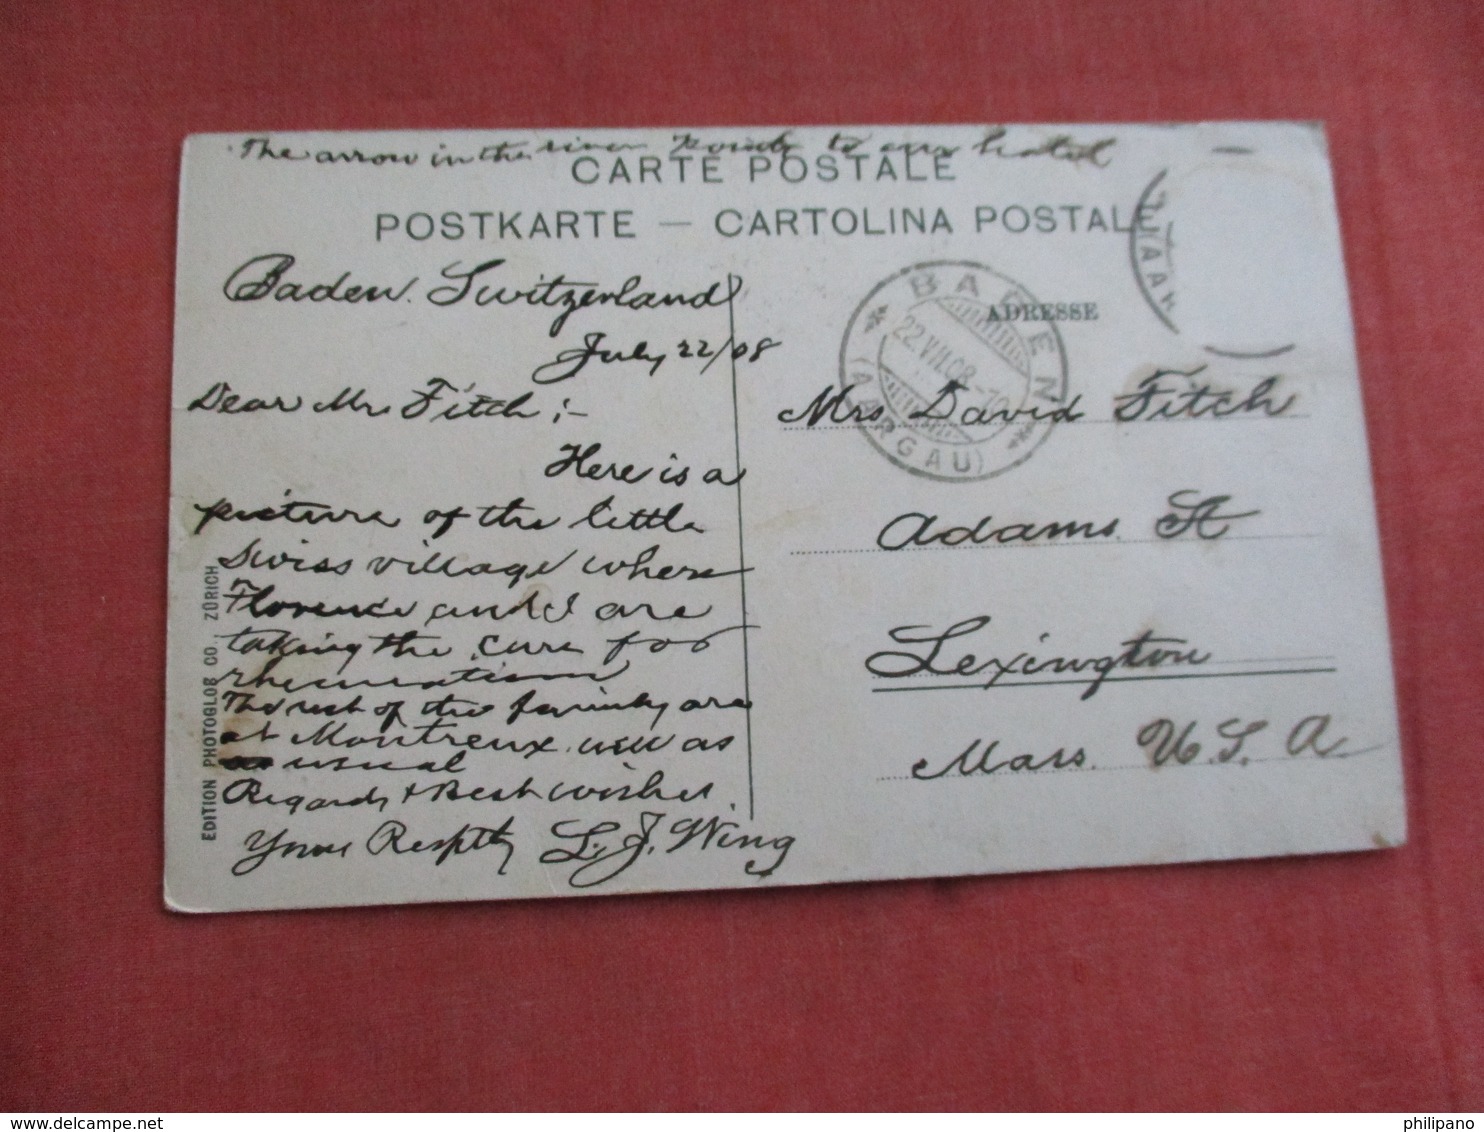 The arrow in the river Points to our hotel
CARTE POSTALE
POSTKARTE — CARTOLINA POSTAL
Baden. Switzerland
July 22/08
Dear Mrs Fitch ;-
Here is a
picture of the little
Swiss village where
Florence and I are
taking the cure for
rheumatism
The rest of the family are
at Montreux well as
usual
Regards + Best wishes.
Yours Respt'ly L. J. Wing
EDITION PHOTOGLOB CO., ZÜRICH
BADEN
22.VII.08-10
(AARGAU)
ADRESSE
Mrs David Fitch
Adams St
Lexington
Mass. U.S.A
www.delcampe.net
philipano